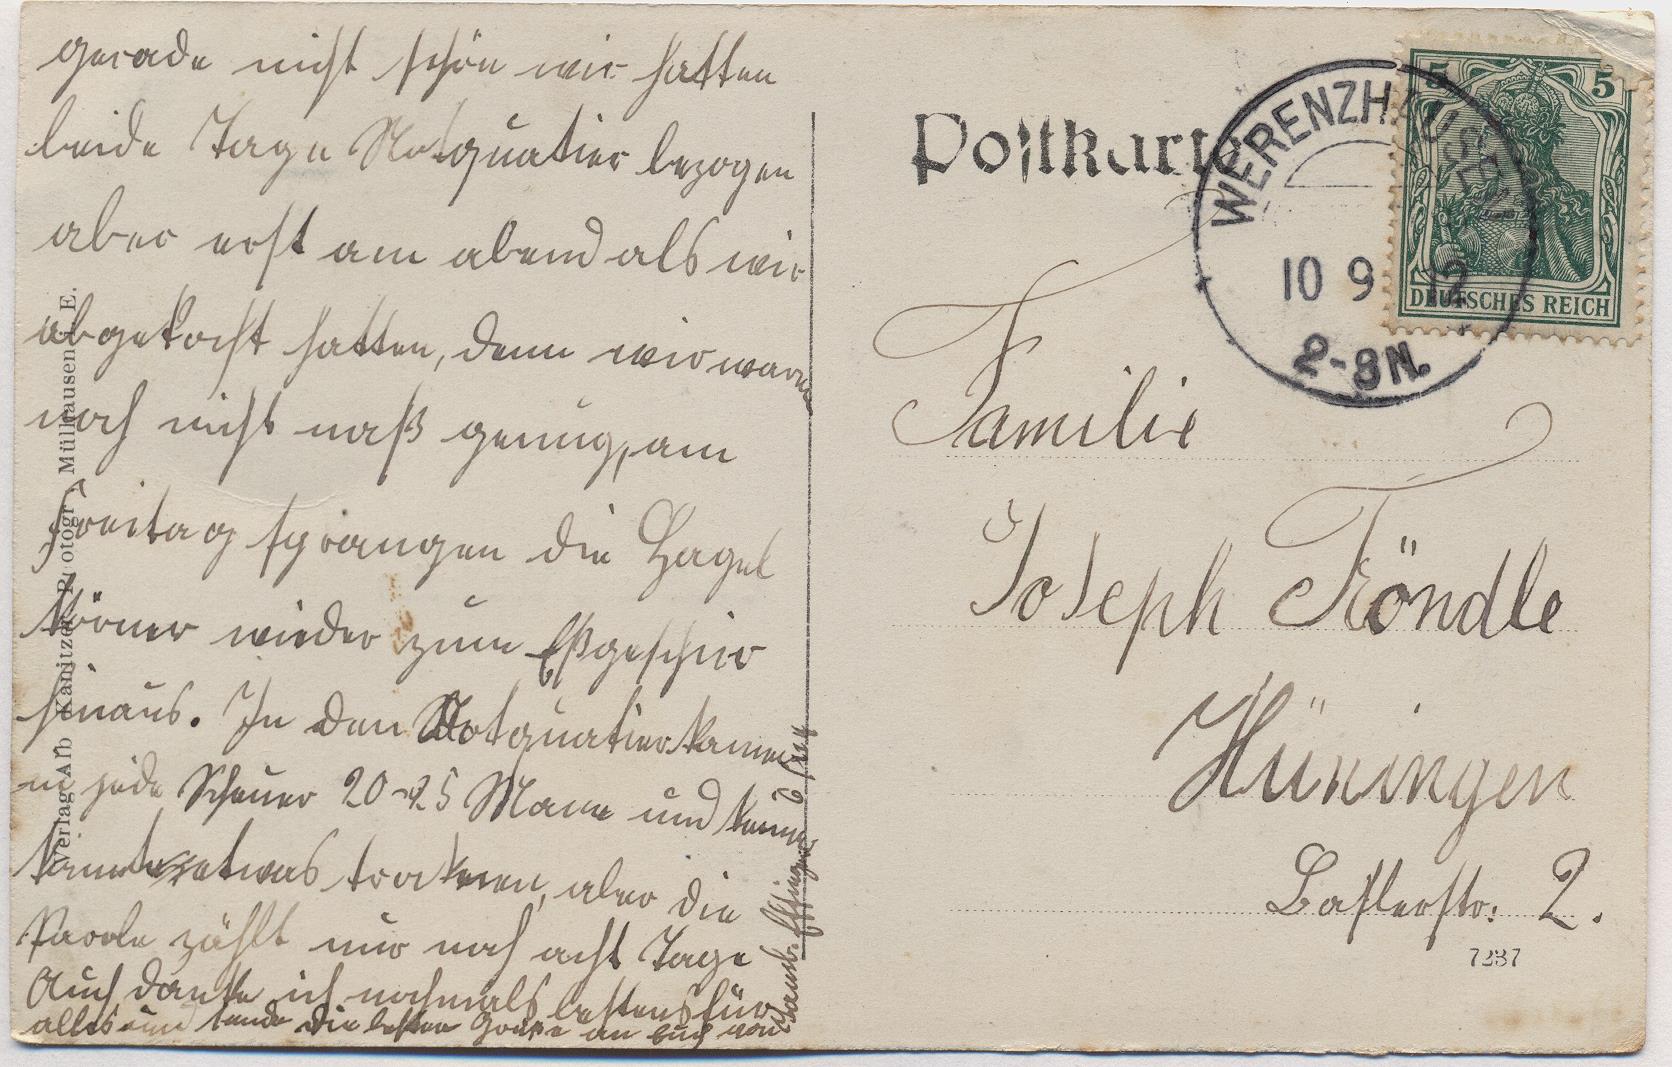 gerade nicht schön wir hatten
beide Tage Notquatier bezogen
aber erst am abend als wir
abgekocht hatten, denn wir waren
noch nicht naß genug, am
Freitag sprangen die Hagel
körner wieder zum Eßgeschirr
hinaus. In den Notquatier kamen
in jede Scheuer 20-25 Mann und
etwas trockenen, aber die
Parole zählt nur noch acht Tage
Auch danke ich nochmals bestens für
alles und sende die besten Grüße an Euch von
Verlag Alb Kanitzer Photogr. Mülhausen i. E.
Postkarte
WERENZHAUSEN
10 9 12
2-3N.
5 5
DEUTSCHES REICH
Familie
Joseph Fröndle
Hüningen
Baslerstr: 2.
7237